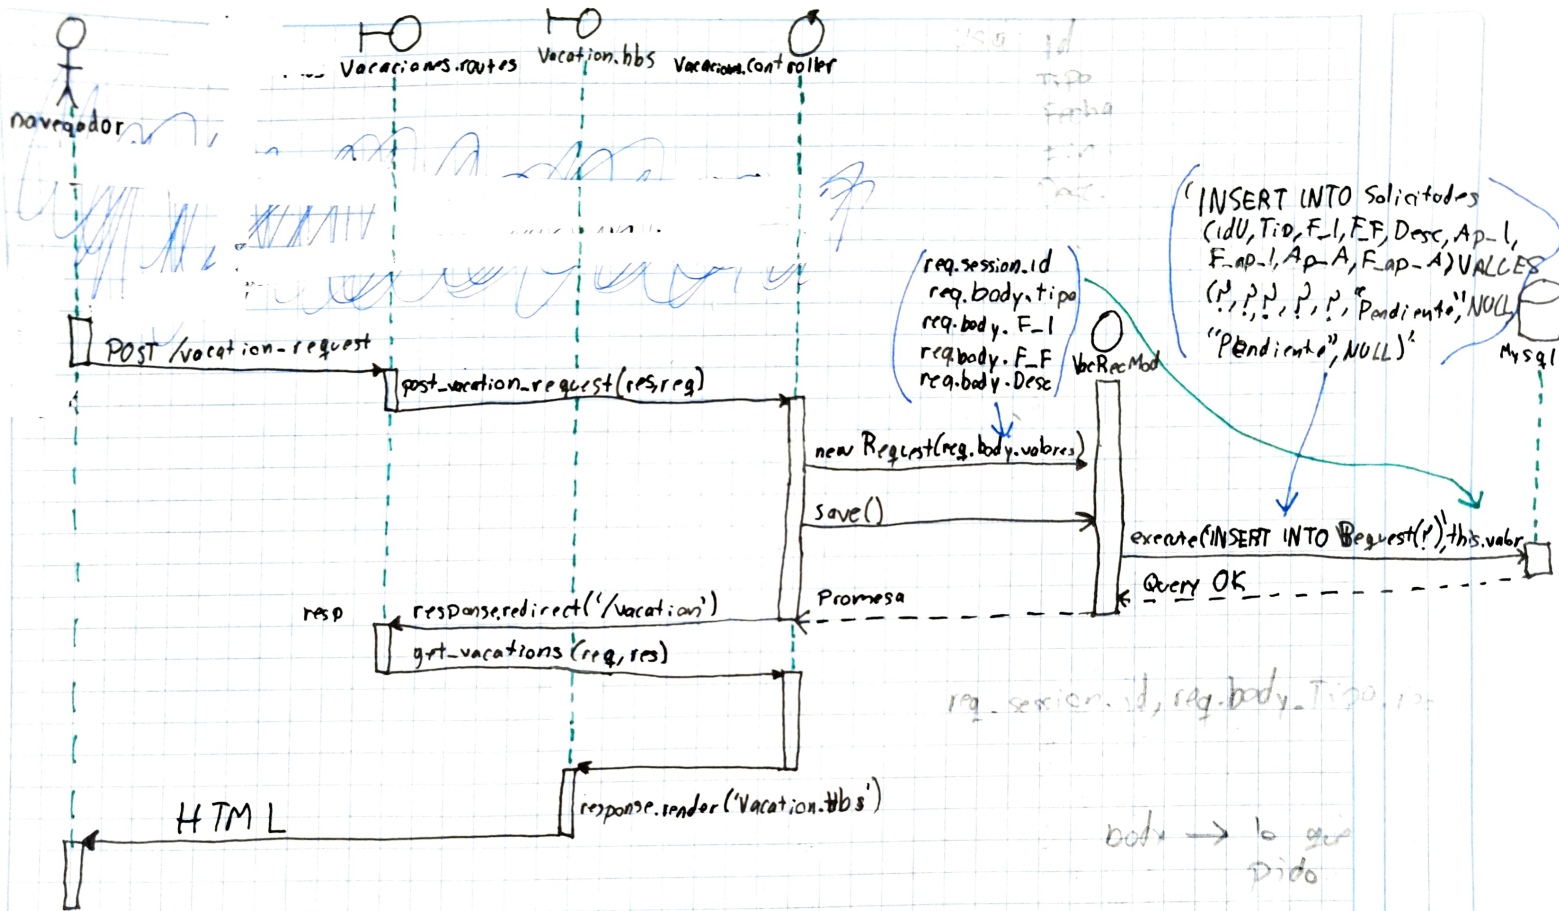 navegador
Vacaciones.routes
Vacation.hbs
Vacacions.controller
id
Tipo
Fecha
req.session.id
req.body.tipo
req.body. F_I
req.body. F_F
req.body.Desc
'INSERT INTO Solicitudes
(idU, Tip, F_I, F_F, Desc, Ap_I,
F_ap_I, Ap_A, F_ap_A) VALUES
(?, ?, ?, ?, ?, "Pendiente", NULL
"Pendiente", NULL)'
VacRecMod
Mysql
POST /vacation_request
post_vacation_request(res,req)
new Request(req.body.valores)
save()
execute('INSERT INTO Request(?)',this.valor
Query OK
Promesa
resp
response.redirect('/vacation')
get_vacations (req, res)
req_session.id, req.body_Tipo,
response.render('Vacation.hbs')
HTML
body → lo que
pido